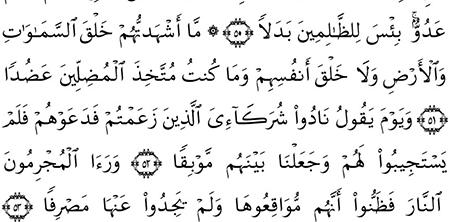 عَدُوٌّۚ بِئْسَ لِلظَّـٰلِمِينَ بَدَلًا ۝٥٠ ۞ مَّآ أَشْهَدتُّهُمْ خَلْقَ ٱلسَّمَـٰوَٰتِ
وَٱلْأَرْضِ وَلَا خَلْقَ أَنفُسِهِمْ وَمَا كُنتُ مُتَّخِذَ ٱلْمُضِلِّينَ عَضُدًا
۝٥١ وَيَوْمَ يَقُولُ نَادُوا۟ شُرَكَآءِىَ ٱلَّذِينَ زَعَمْتُمْ فَدَعَوْهُمْ فَلَمْ
يَسْتَجِيبُوا۟ لَهُمْ وَجَعَلْنَا بَيْنَهُم مَّوْبِقًا ۝٥٢ وَرَءَا ٱلْمُجْرِمُونَ
ٱلنَّارَ فَظَنُّوٓا۟ أَنَّهُم مُّوَاقِعُوهَا وَلَمْ يَجِدُوا۟ عَنْهَا مَصْرِفًا ۝٥٣